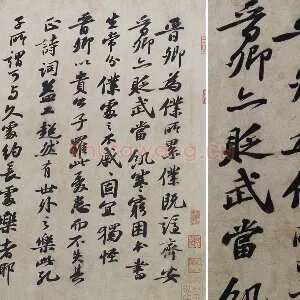 晉卿為僕所累僕既謫齊安
晉卿亦貶武當飢寒窮困本書
生常分僕處之不戚戚固宜獨怪
晉卿以貴公子罹此憂患而不失其
正詩詞益工超然有世外之樂此孔
子所謂可與久處約長處樂者耶
晉卿亦貶武當飢